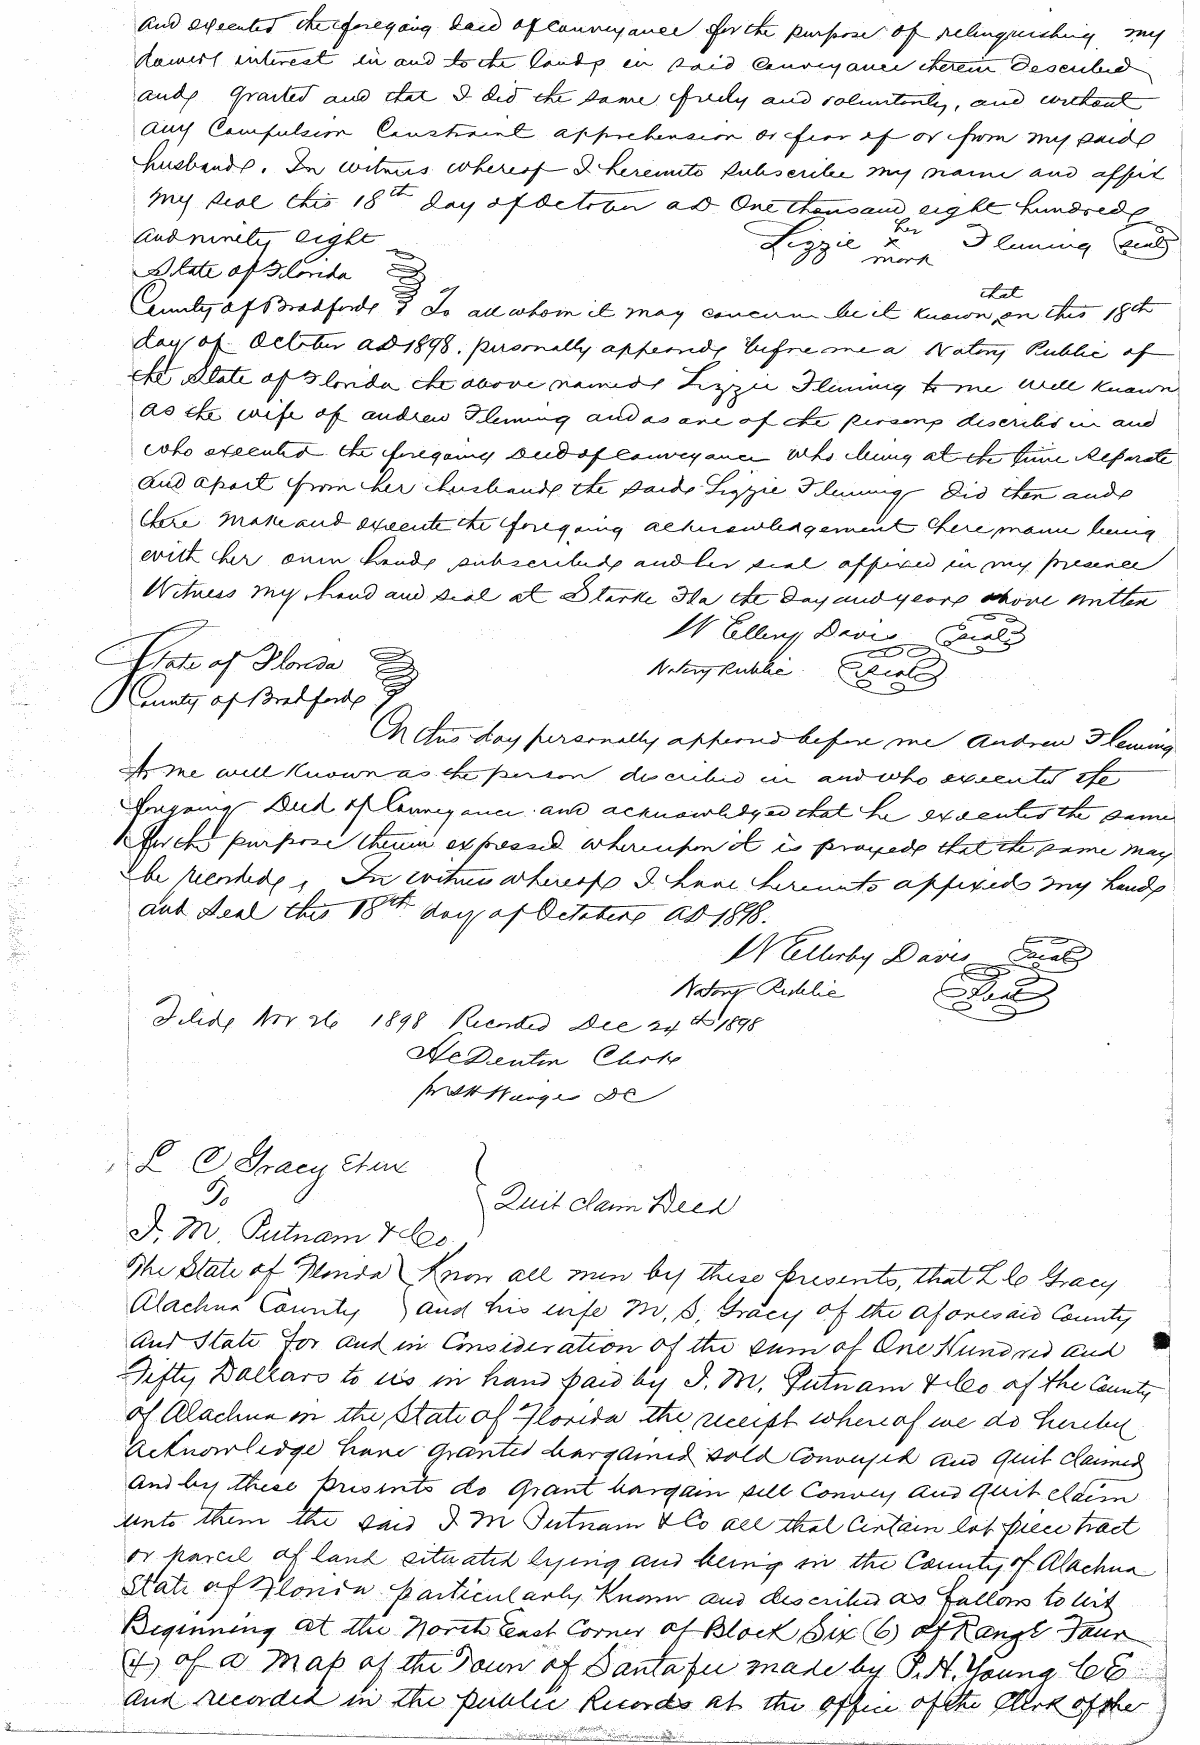 and executed the foregoing deed of conveyance for the purpose of relinquishing my
dowers interest in and to the lands in said conveyance therein described
and granted and that I did the same freely and voluntonly, and without
any Compulsion Constraint apprehension or fear of or from my said
husband. In witness whereof I hereunto subscribe my name and affix
my seal this 18th day of October AD One thousand eight hundred
and ninety eight
Lizzie her x mark Fleming (seal)
State of Florida
County of Bradford To all whom it may concern be it known that on this 18th
day of October AD 1898. personally appeared before me a Notory Public of
the State of Florida the above named Lizzie Fleming to me well known
as the wife of andrew Fleming and as one of the persons described in and
who executed the foregoing Deed of Conveyance who being at the time separate
and apart from her husband the said Lizzie Fleming did then and
there make and execute the foregoing acknowledgement here name being
with her own hand subscribed and her seal affixed in my presence
Witness my hand and seal at Starke Fla the day and year above written
W Ellerby Davis (seal)
Notory Public (seal)
State of Florida
County of Bradford
On this day personally appeared before me Andrew Fleming
to me well known as the person described in and who executed the
forgoing Deed of Conveyance and acknowledged that he executed the same
for the purpose therein expressed whereupon it is prayed that the same may
be recorded, In witness whereof I have hereunto affixed my hand
and seal this 18th day of October AD 1898.
W Ellerby Davis (seal)
Notory Public (seal)
Filed Nov 26 1898 Recorded Dec 24th 1898
Denton Clerk
DC
L C Gracy et ux
To
Quit claim Deed
I. M. Putnam & Co.
The State of Florida Know all men by these presents, that L C Gracy
Alachua County and his wife M. S. Gracy of the aforesaid County
and State for and in Consideration of the sum of One Hundred and
Fifty Dollars to us in hand paid by I. M. Putnam & Co of the County
of Alachua in the State of Florida the receipt whereof we do hereby
acknowledge have granted bargained sold Conveyed and quit claimed
and by these presents do grant bargain sell Convey and quit claim
unto them the said I M Putnam & Co all that certain lot piece tract
or parcel of land situated lying and being in the County of Alachua
State of Florida particularly Known and described as follows to wit
Beginning at the North East Corner of Block Six (6) of Range Four
(4) of a Map of the Town of Santafee made by P. H. Young C E
and recorded in the public Records at the office of the Clerk of the